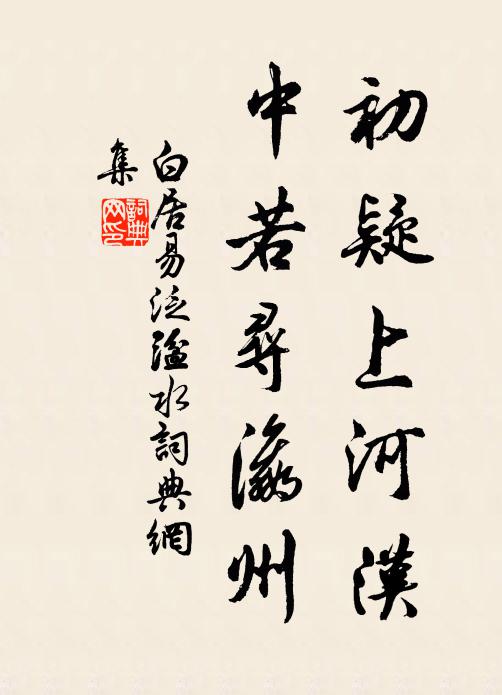 初疑上河漢
中若尋瀛州
白居易泛溢水詞典網
集
詞典
网印